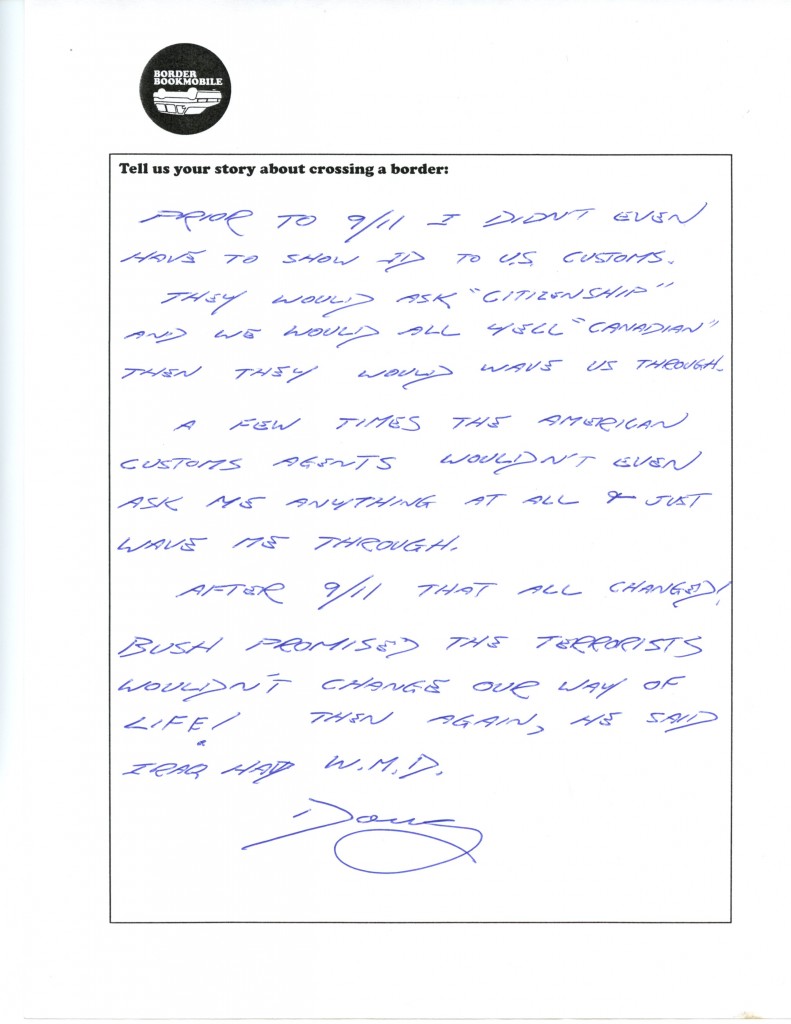 BORDER
BOOKMOBILE
Tell us your story about crossing a border:
PRIOR TO 9/11 I DIDN'T EVEN
HAVE TO SHOW ID TO U.S. CUSTOMS.
THEY WOULD ASK "CITIZENSHIP"
AND WE WOULD ALL YELL "CANADIAN"
THEN THEY WOULD WAVE US THROUGH.
A FEW TIMES THE AMERICAN
CUSTOMS AGENTS WOULDN'T EVEN
ASK ME ANYTHING AT ALL & JUST
WAVE ME THROUGH.
AFTER 9/11 THAT ALL CHANGED!
BUSH PROMISED THE TERRORISTS
WOULDN'T CHANGE OUR WAY OF
LIFE! THEN AGAIN, HE SAID
IRAQ HAD W.M.D.
Doug